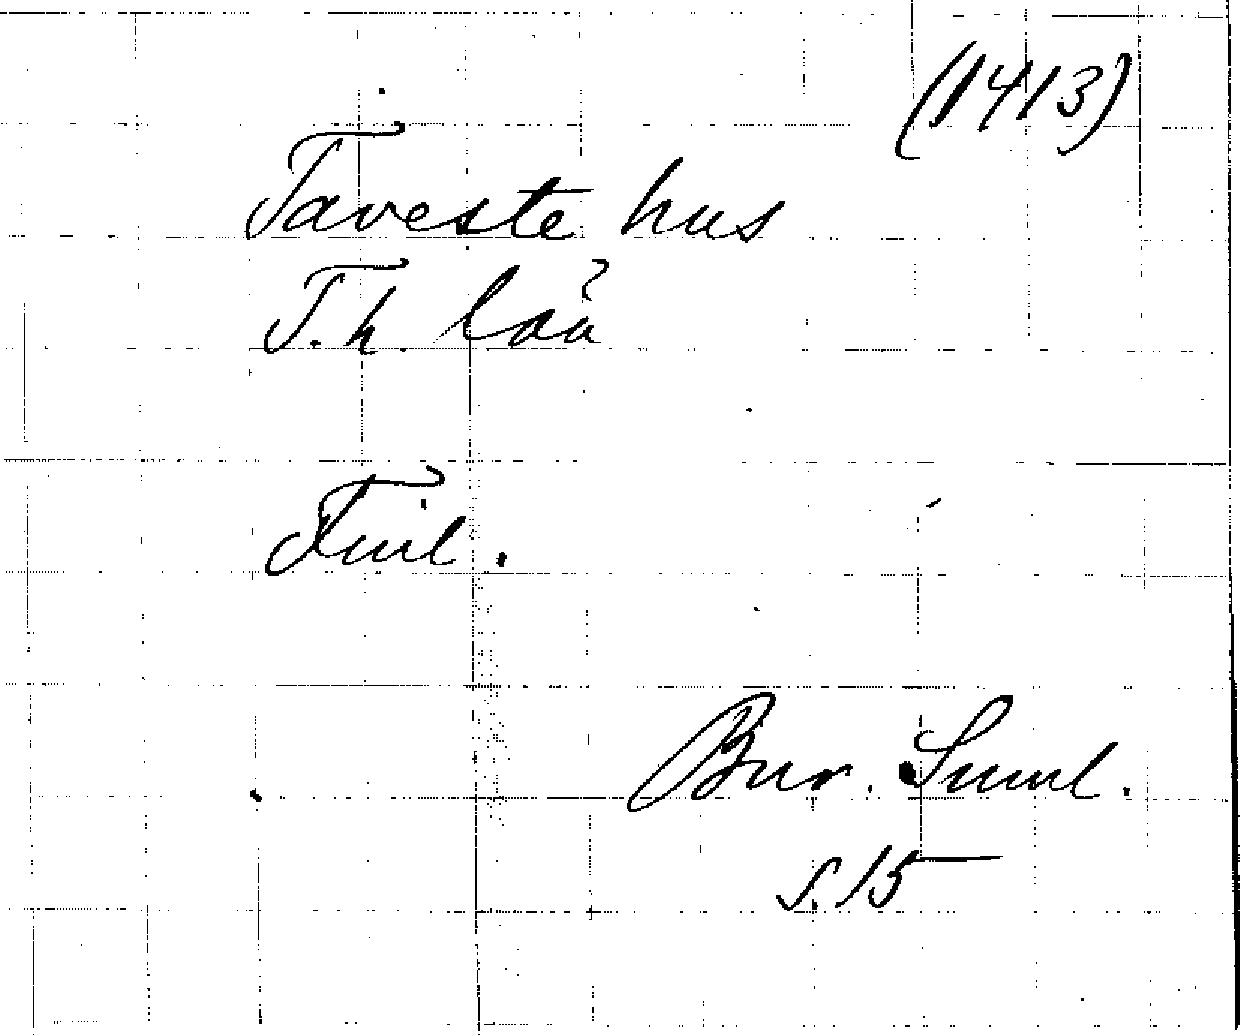 (1413)
Taveste hus
T.h. lää
Finl.
Bur. Suml.
s. 15